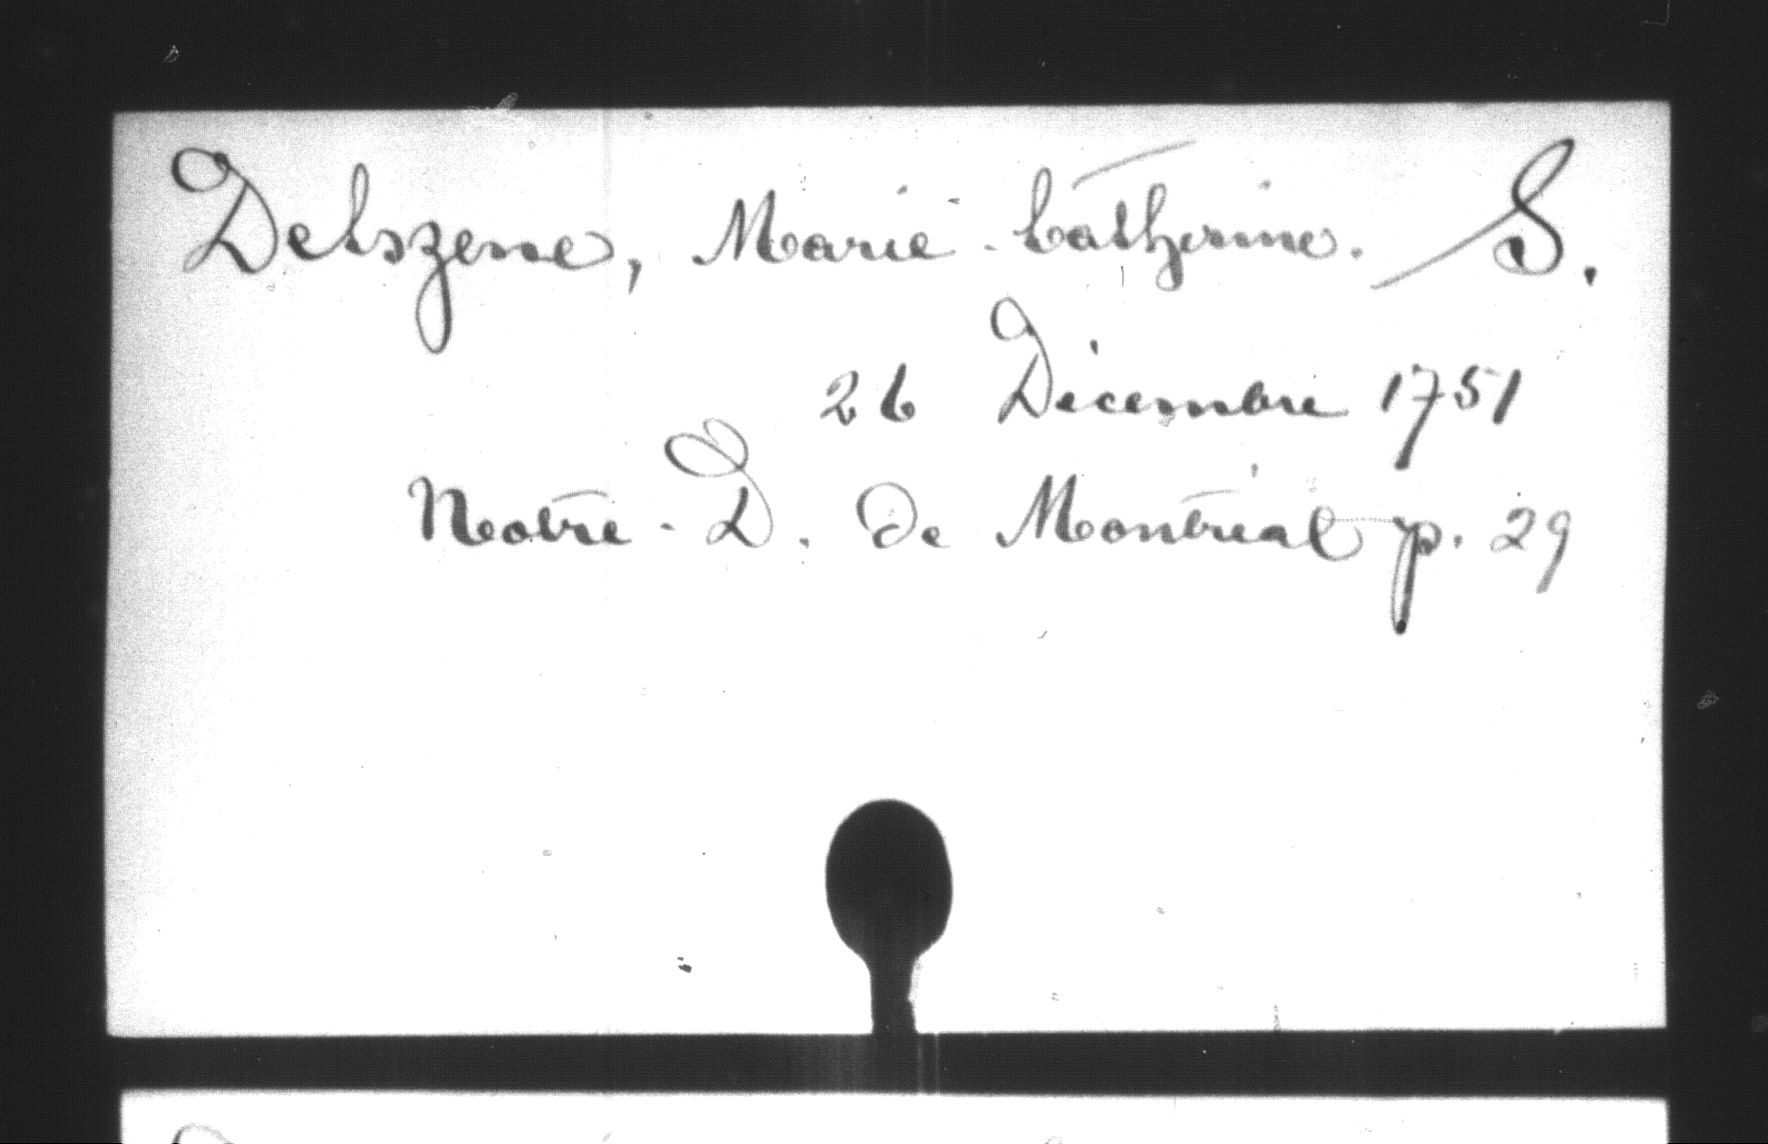 Delszene, Marie-Catherine. S.
26 Décembre 1751
Notre-D. de Montréal p. 29